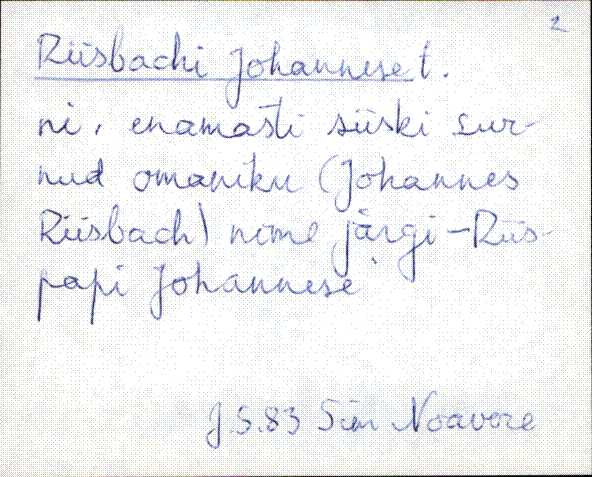 2
Riisbachi Johannese t.
ni, enamasti siiski sur-
nud omaniku (Johannes
Riisbach) nime järgi - Riis-
papi Johannese
J.S.83 Sim Noavere